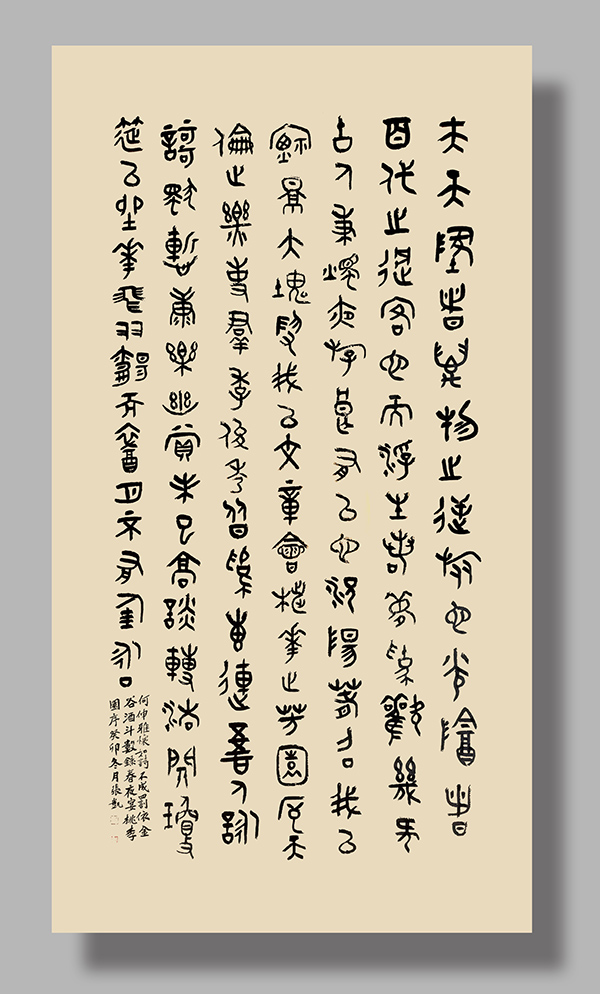 夫天地者萬物之逆旅也光陰者
百代之過客也而浮生若夢為歡幾何
古人秉燭夜遊良有以也況陽春召我以
煙景大塊假我以文章會桃花之芳園序天
倫之樂事群季俊秀皆為惠連吾人詠
歌獨慚康樂幽賞未已高談轉清開瓊
筵以坐花飛羽觴而醉月不有佳作
何伸雅懷如詩不成罰依金
谷酒斗數錄春夜宴桃李
園序癸卯冬月張凱